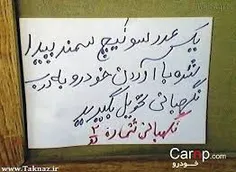 یک عدد سوئیچ سمند پیدا
شده با آوردن خودرو به درب
نگهبانی تحویل بگیرید
نگهبانی شماره ۲
www.Taknaz.ir
Carop.com
خودرو